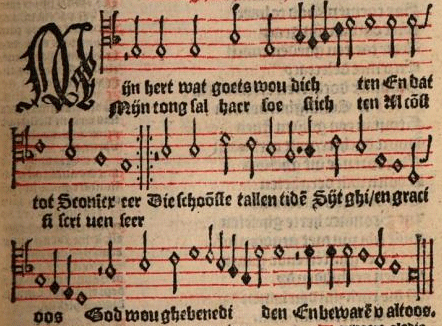 Mijn hert wat goets wou dich ten En dat
Mijn tong sal haer soe slich ten Al cōst
tot Sconicx eer Die schoōste tallen tidē Sijt ghi/en graci
si scri uen seer
oos God wou ghebenedi den En bewarē v altoos.